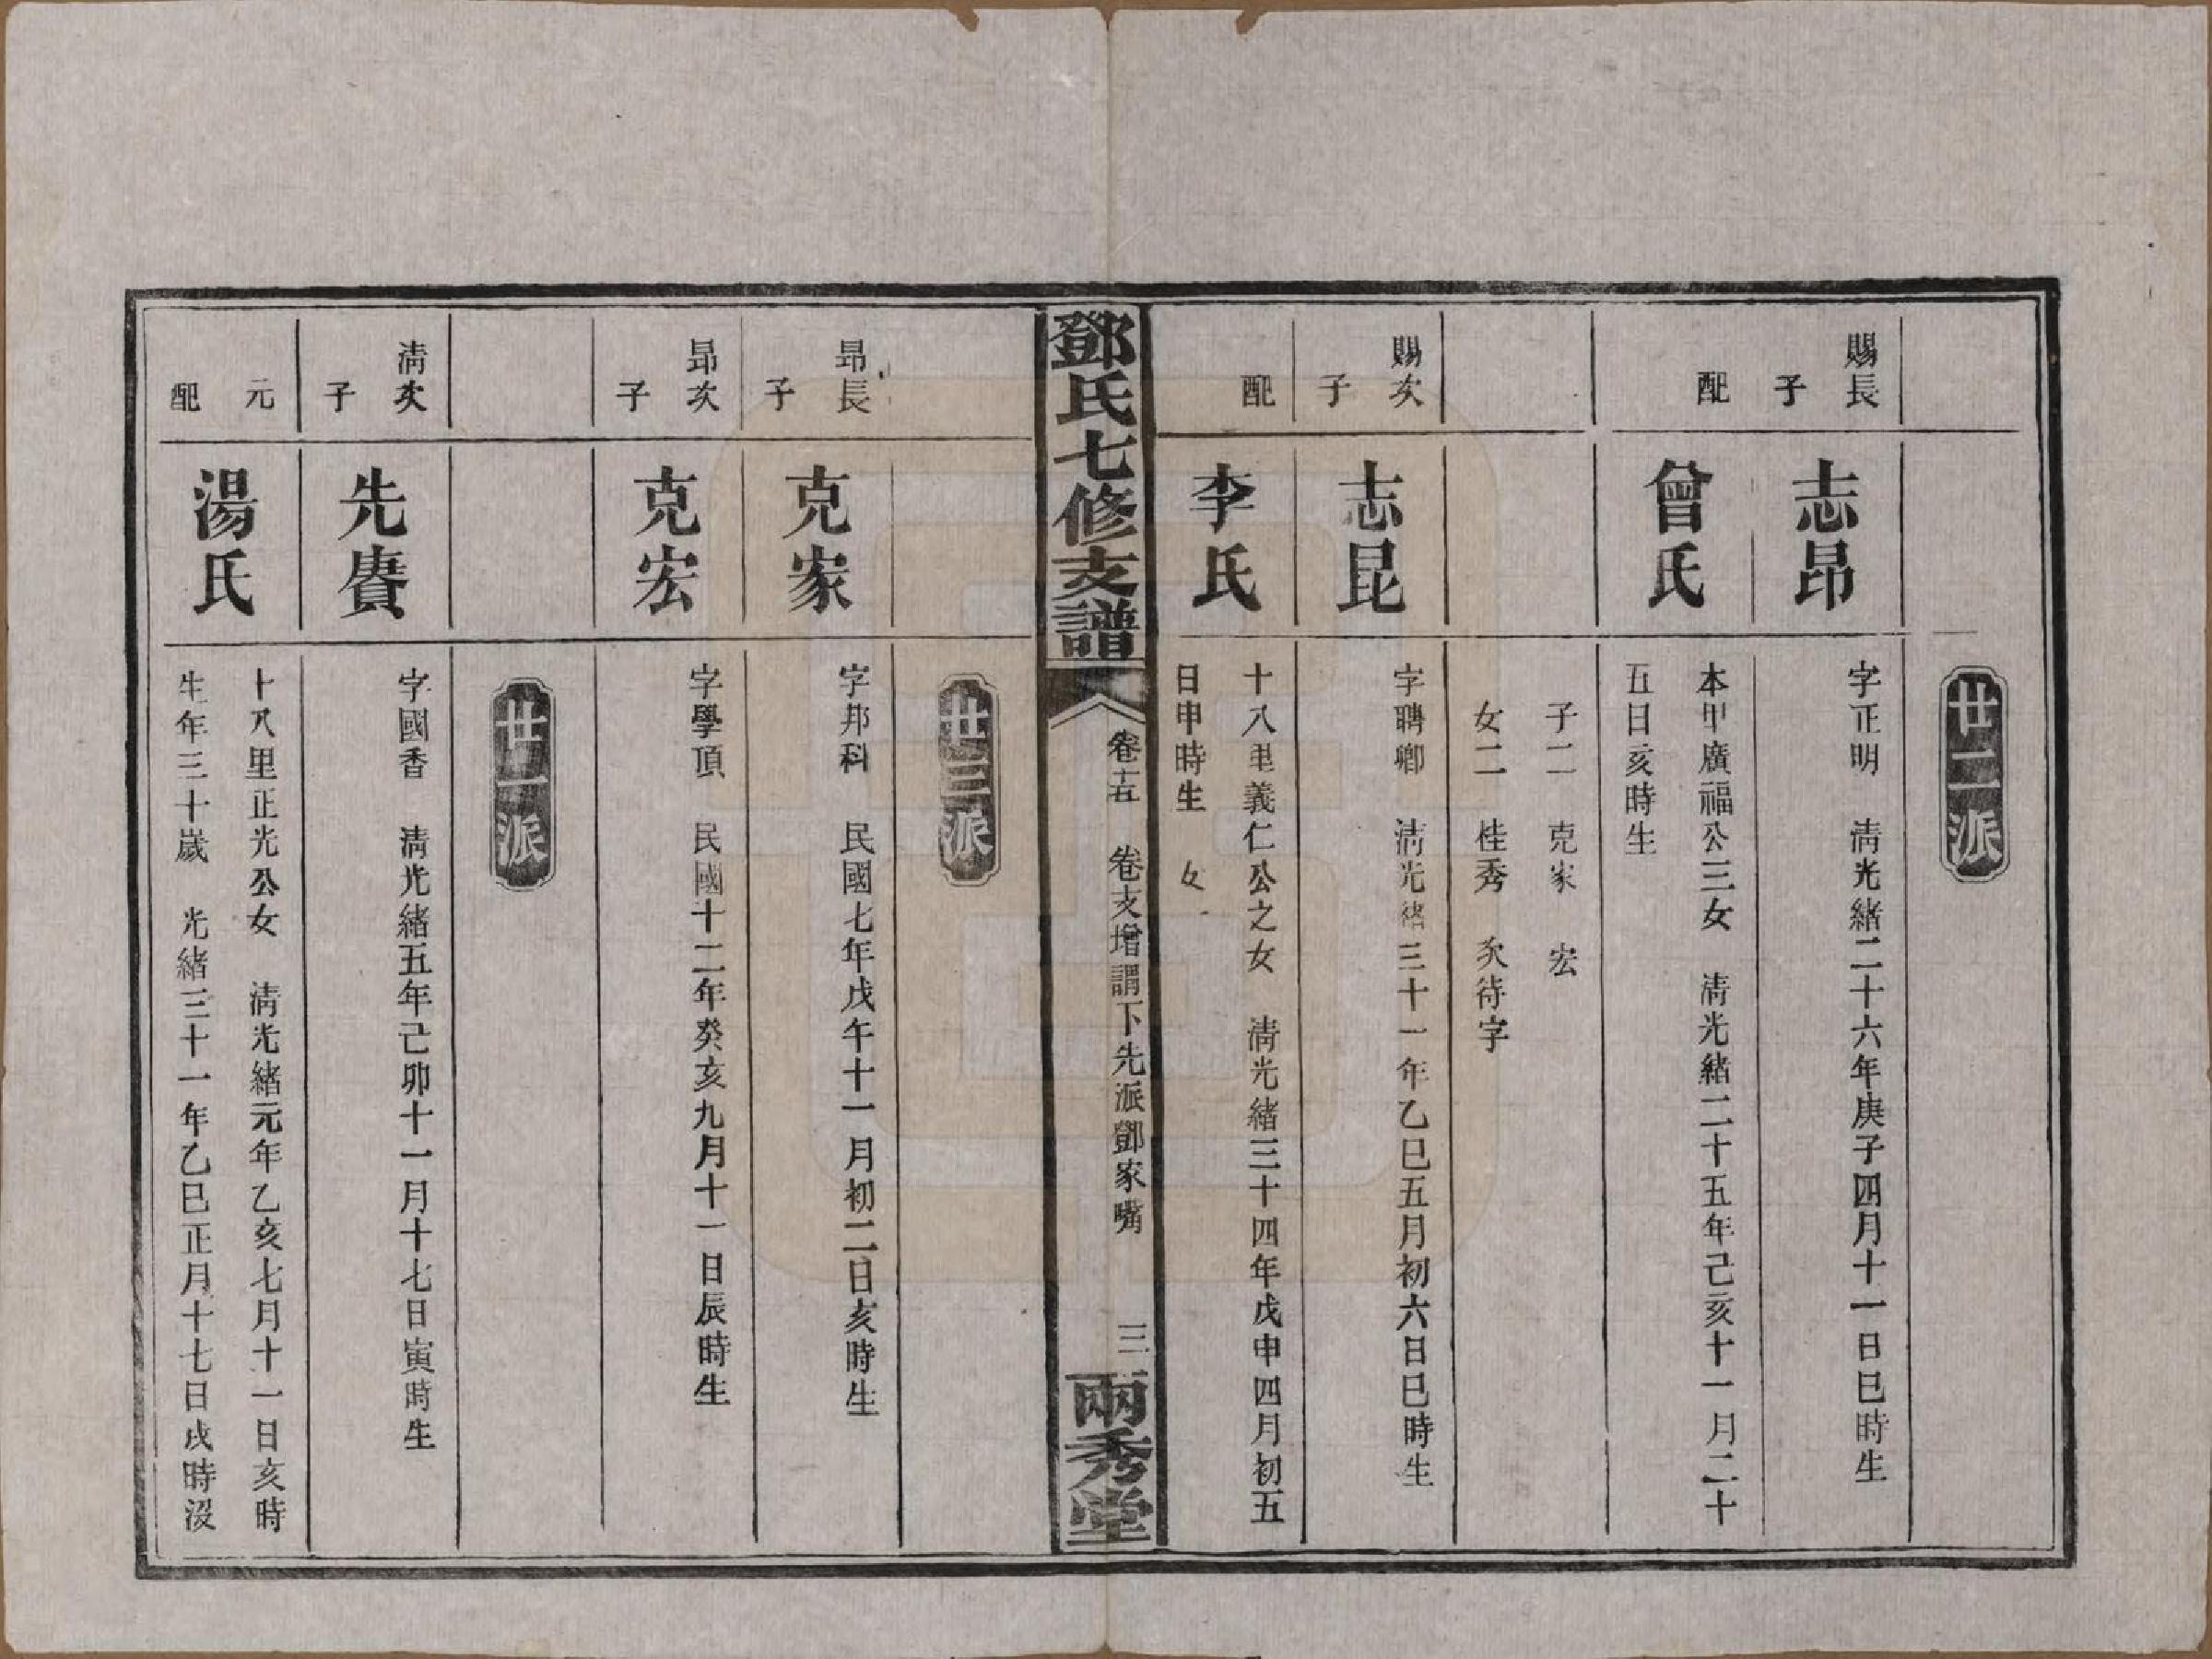 廿二派
賜長子
志昂
字正明　清光緒二十六年庚子四月十一日巳時生
配
曾氏
本甲廣福公三女　清光緒二十五年己亥十一月二十
五日亥時生
子二　克家　宏
女二　桂秀　次待字
賜次子
志昆
字聘卿　清光緒三十一年乙巳五月初六日巳時生
配
李氏
十八里義仁公之女　清光緒三十四年戊申四月初五
日申時生　女
鄧氏七修支譜
卷十五　卷支增謂下先派鄧家嘴
三
兩秀堂
廿三派
昂長子
克家
字邦科　民國七年戊午十一月初二日亥時生
昂次子
克宏
字學頂　民國十二年癸亥九月十一日辰時生
廿一派
清次子
先賚
字國香　清光緒五年己卯十一月十七日寅時生
元配
湯氏
十八里正光公女　清光緒元年乙亥七月十一日亥時
生年三十歲　光緒三十一年乙巳正月十七日戌時沒